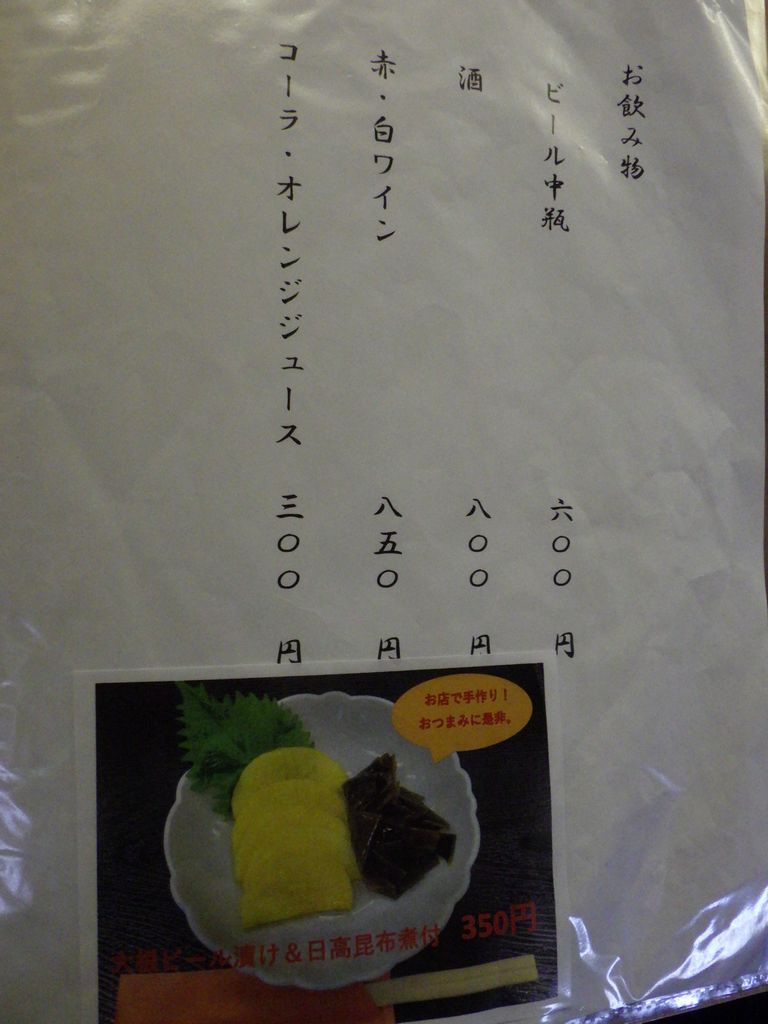 お飲み物
ビール中瓶 六〇〇 円
酒 八〇〇 円
赤・白ワイン 八五〇 円
コーラ・オレンジジュース 三〇〇 円
お店で手作り！
おつまみに是非。
大根ビール漬け＆日高昆布煮付 350円